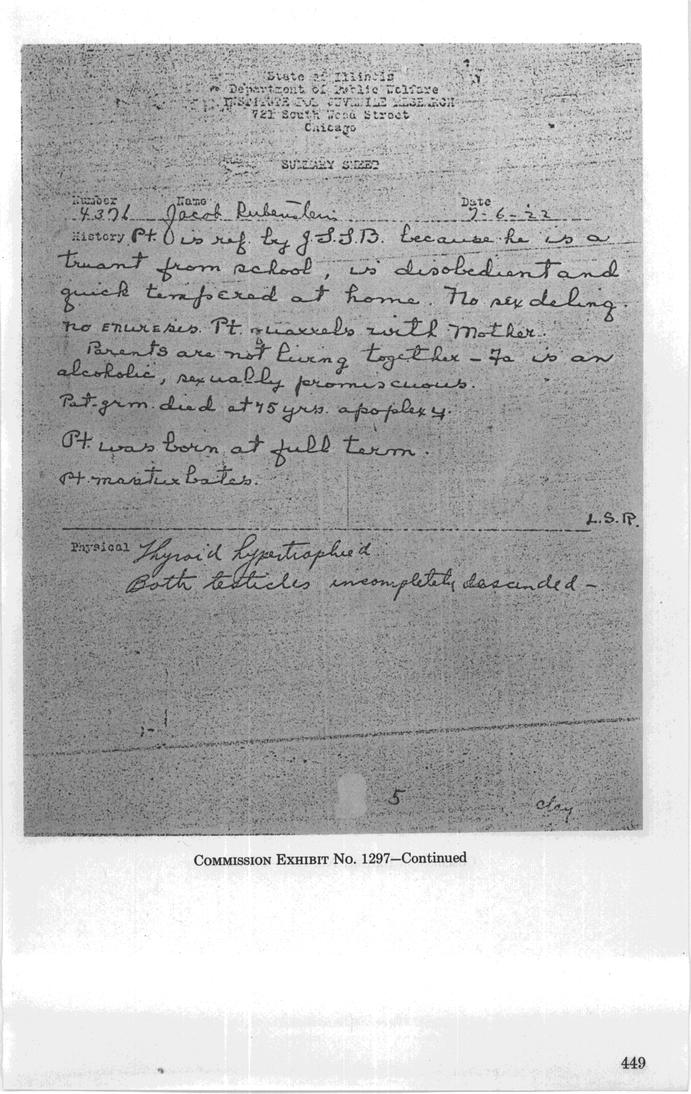 State of Illinois
Department of Public Welfare
INSTITUTE FOR JUVENILE RESEARCH
721 South Wood Street
Chicago
SUMMARY SHEET
Number Name Date
4376 Jacob Rubenstein 7-6-22
History Pt. is ref. by J.S.S.B. because he is a
truant from school, is disobedient and
quick tempered at home. No sex delinq.
no enuresis. Pt. quarrels with Mother.
Parents are not living together - Fa is an
alcoholic, sexually promiscuous.
Pat-grm. died at 75 yrs. apoplexy.
Pt. was born at full term.
Pt. masturbates.
L.S.R.
Physical Thyroid hypertrophied
Both testicles incompletely descended -
5
clay
COMMISSION EXHIBIT No. 1297—Continued
449